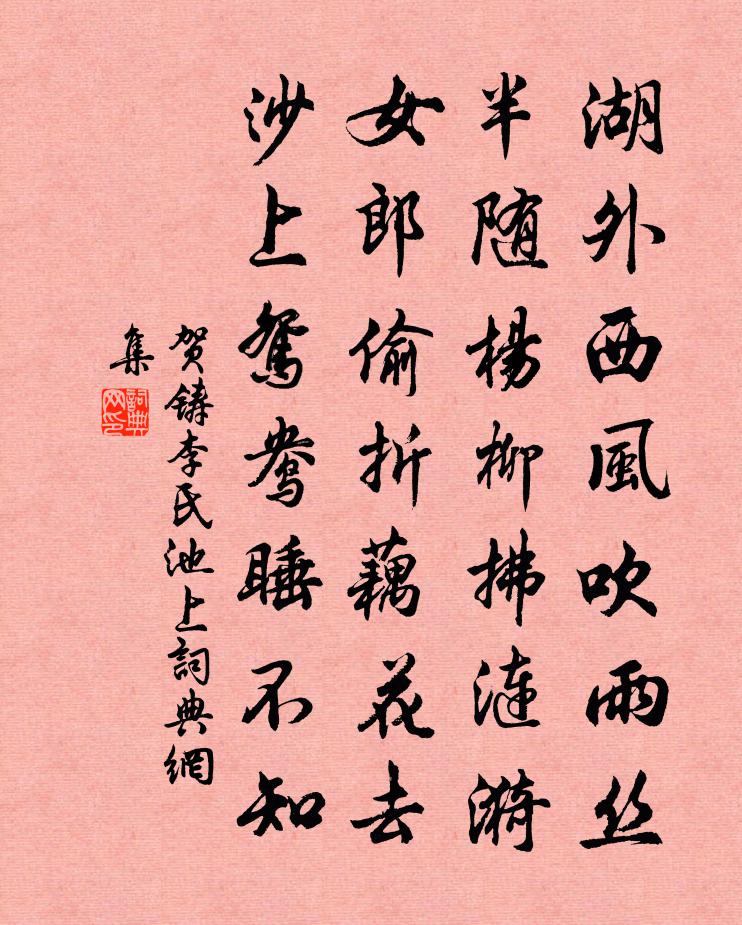 湖外西風吹雨丝
半随楊柳拂漣漪
女郎偷折藕花去
沙上鴛鴦睡不知
贺鑄李氏池上詞典網
集
詞典
网印